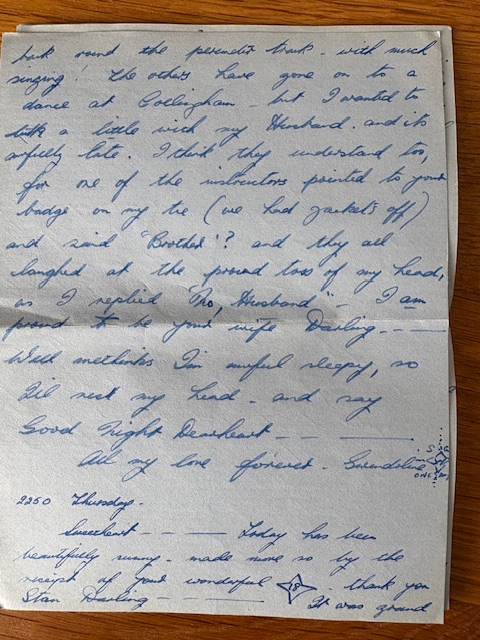 back round the perimeter track - with much
singing! The others have gone on to a
dance at Collingham - but I wanted to
talk a little with my Husband. and its
awfully late. I think they understand too,
for one of the instructors pointed to your
badge on my tie (we had jackets off)
and said "Brother"? and they all
laughed at the proud toss of my head,
as I replied "No, Husband" - I am
proud to be your wife Darling - - —
Well methinks I'm awful sleepy, so
I'll rest my head - and say
Good Night Dearheart - - —
All my love forever - Gwendoline
2250 Thursday.
Sweetheart - - — Today has been
beautifully sunny - made more so by the
receipt of your wonderful 18 - thank you
Stan Darling - — It was grand